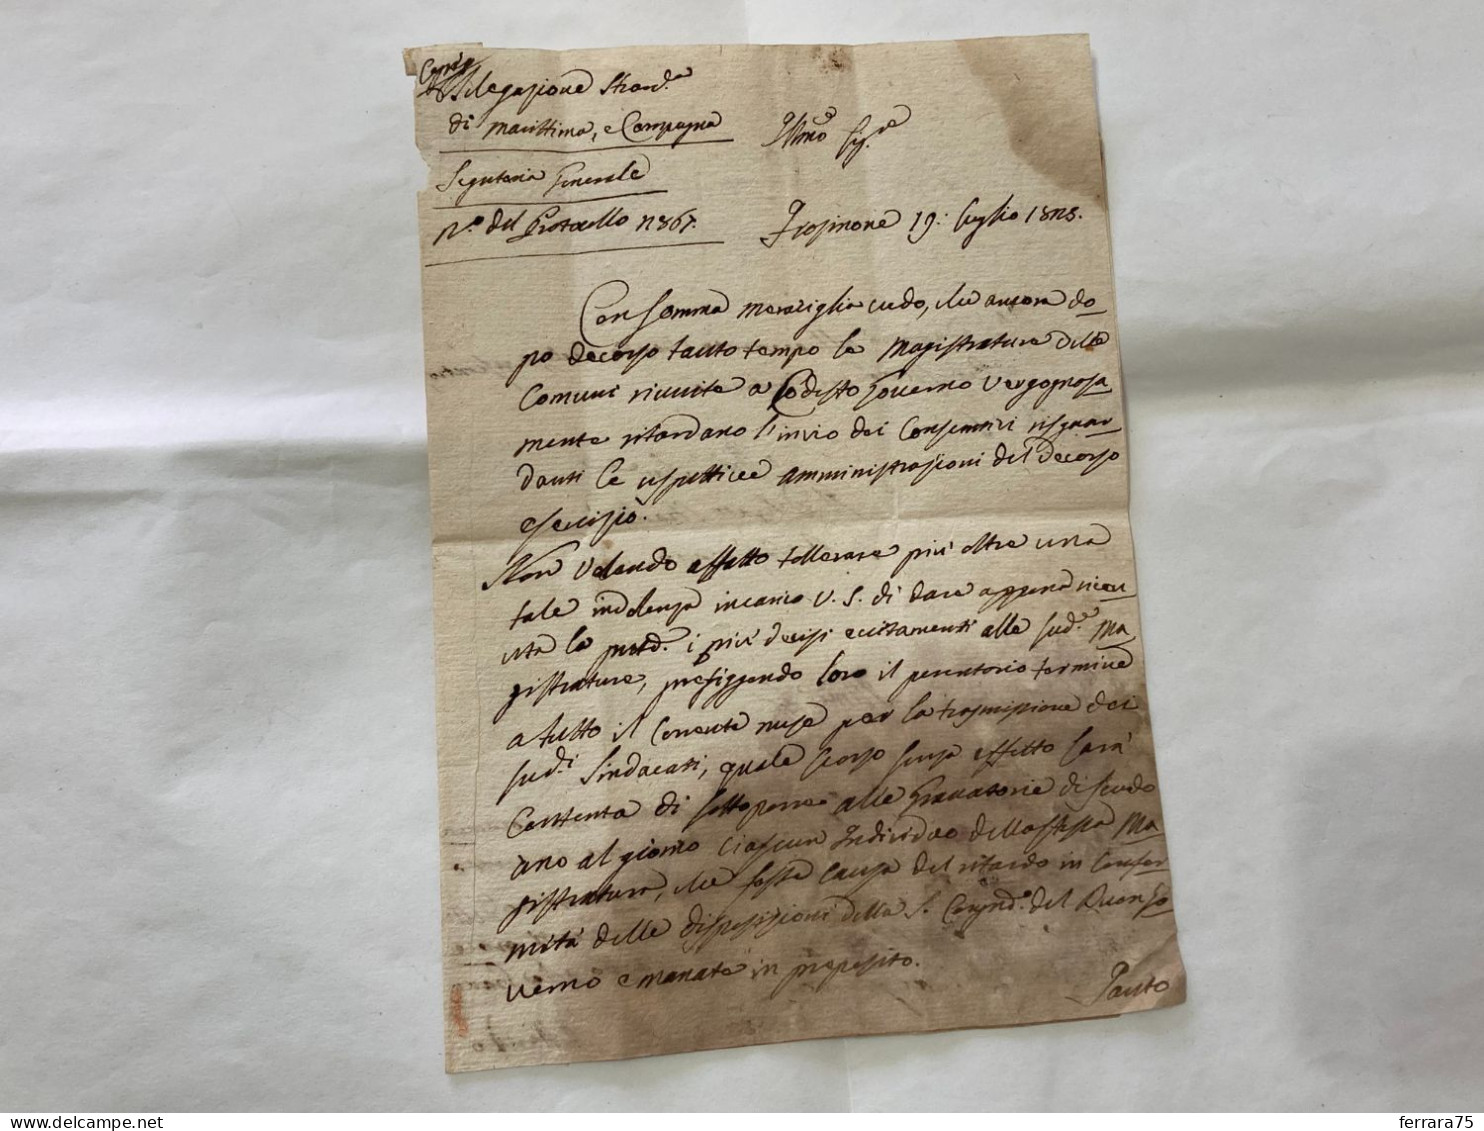 Copia
Delegazione Strard.a
di Marittima, e Campagna
Segreteria Generale
N.o del Protocollo
Illmo Sig.re
Frosinone 19. Luglio
Con somma meraviglia vedo, che ancora do-
po decorso tanto tempo le Magistrature delle
Comuni riunite a Codesto Governo Vergognosa-
mente ritardano l'invio dei Consuntivi risguar-
danti le rispettive amministrazioni del decorso
esercizio.
Non Volendo affatto tollerare più oltre una
tale indolenza incarico V. S. di dare appena ricev-
uta la pnte. i più decisi eccitamenti alle sud.e Ma-
gistrature, prefiggendo loro il perentorio termine
a tutto il Corrente mese per la trasmissione dei
sud.i Sindacati, quale scorso senza effetto sarà
Contenta di sottoporre alle Gravatorie di scudo
uno al giorno Ciascun Individuo della stessa Ma-
gistratura, che fosse causa del ritardo in Confor-
mità delle disposizioni della S. Congne. del Buon Go-
verno emanate in proposito.
Tanto
ferrara75